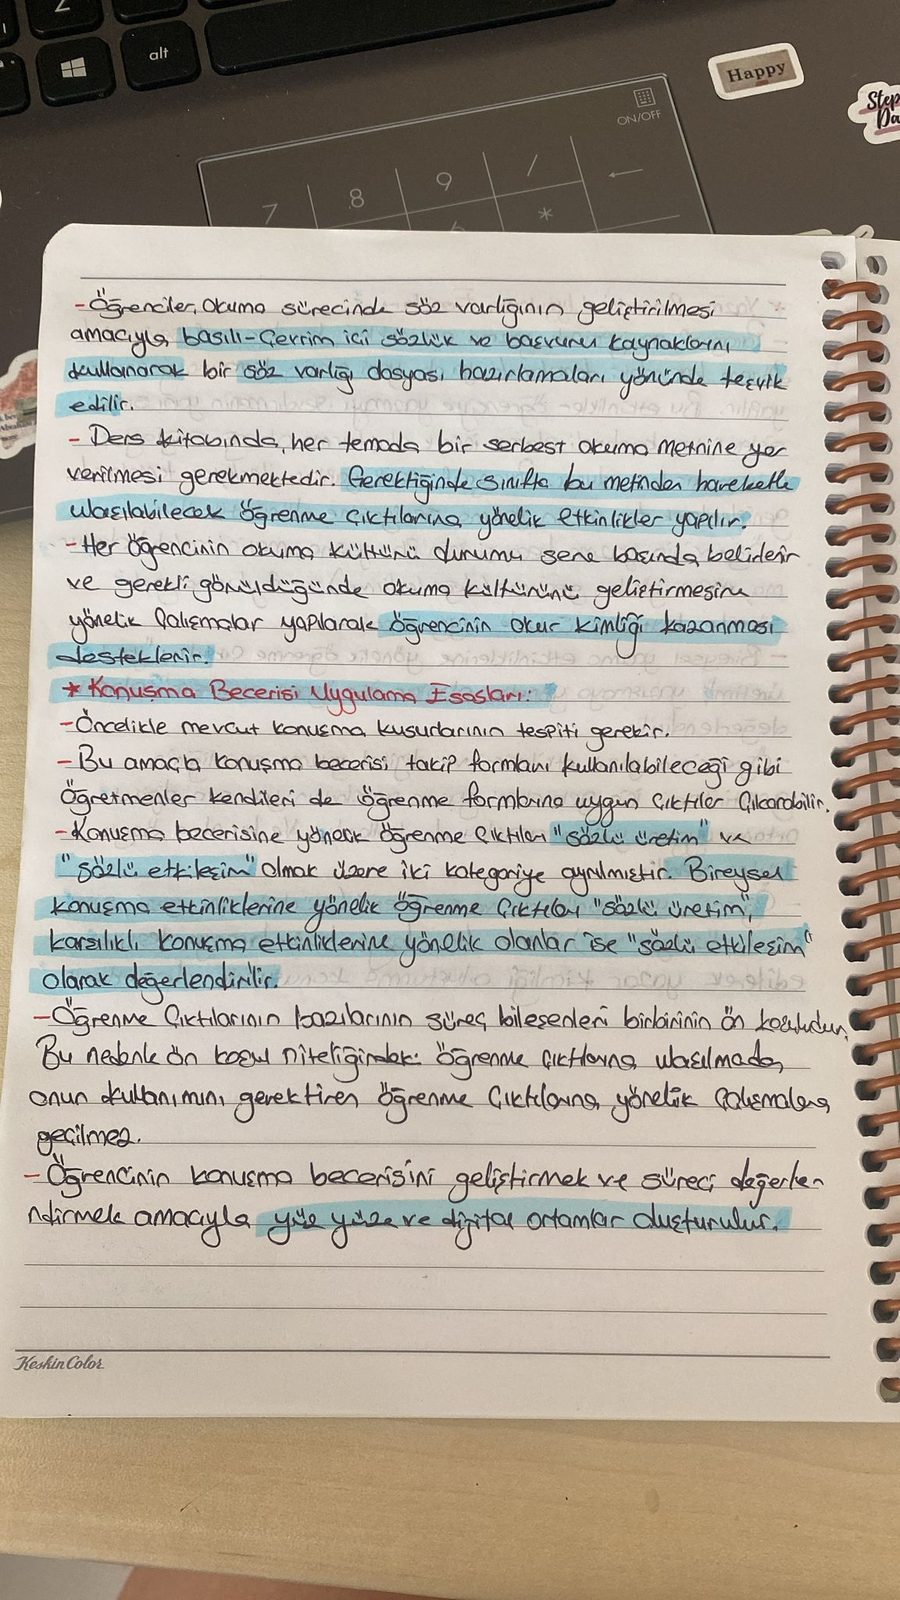 alt
Happy
Step
Da
ON/OFF
7 8 9 / ←
6 *
-Öğrenciler, okuma sürecinde söz varlığının geliştirilmesi
amacıyla basılı-Çevrim içi sözlük ve başvuru kaynaklarını
kullanarak bir söz varlığı dosyası hazırlamaları yönünde teşvik
edilir.
- Ders kitabında, her temada bir serbest okuma metnine yer
verilmesi gerekmektedir. Gerektiğinde sınıfta bu metinden hareketle
ulaşılabilecek öğrenme çıktılarına yönelik etkinlikler yapılır.
-Her öğrencinin okuma kültürü durumu sene başında belirlenir
ve gerekli görüldüğünde okuma kültürünü geliştirmesine
yönelik Çalışmalar yapılarak öğrencinin okur kimliği kazanması
desteklenir.
* Konuşma Becerisi Uygulama Esasları:
-Öncelikle mevcut konuşma kusurlarının tespiti gerekir.
-Bu amaçla konuşma becerisi takip formları kullanılabileceği gibi
Öğretmenler kendileri de öğrenme formlarına uygun Çıktılar Çıkarabilir.
-Konuşma becerisine yönelik öğrenme Çıktıları "sözlü üretim" ve
"sözlü etkileşim" olmak üzere iki kategoriye ayrılmıştır. Bireysel
konuşma etkinliklerine yönelik öğrenme Çıktıları "sözlü üretim",
karşılıklı konuşma etkinliklerine yönelik olanlar ise "sözlü etkileşim"
olarak değerlendirilir.
-Öğrenme Çıktılarının bazılarının süreç bileşenleri birbirinin ön koşuludur.
Bu nedenle ön koşul niteliğindeki öğrenme Çıktılarına ulaşılmadan
onun kullanımını gerektiren öğrenme Çıktılarına yönelik Çalışmalara
geçilmez.
-Öğrencinin konuşma becerisini geliştirmek ve süreci değerle-
ndirmek amacıyla yüz yüze ve dijital ortamlar oluşturulur.
Keskin Color